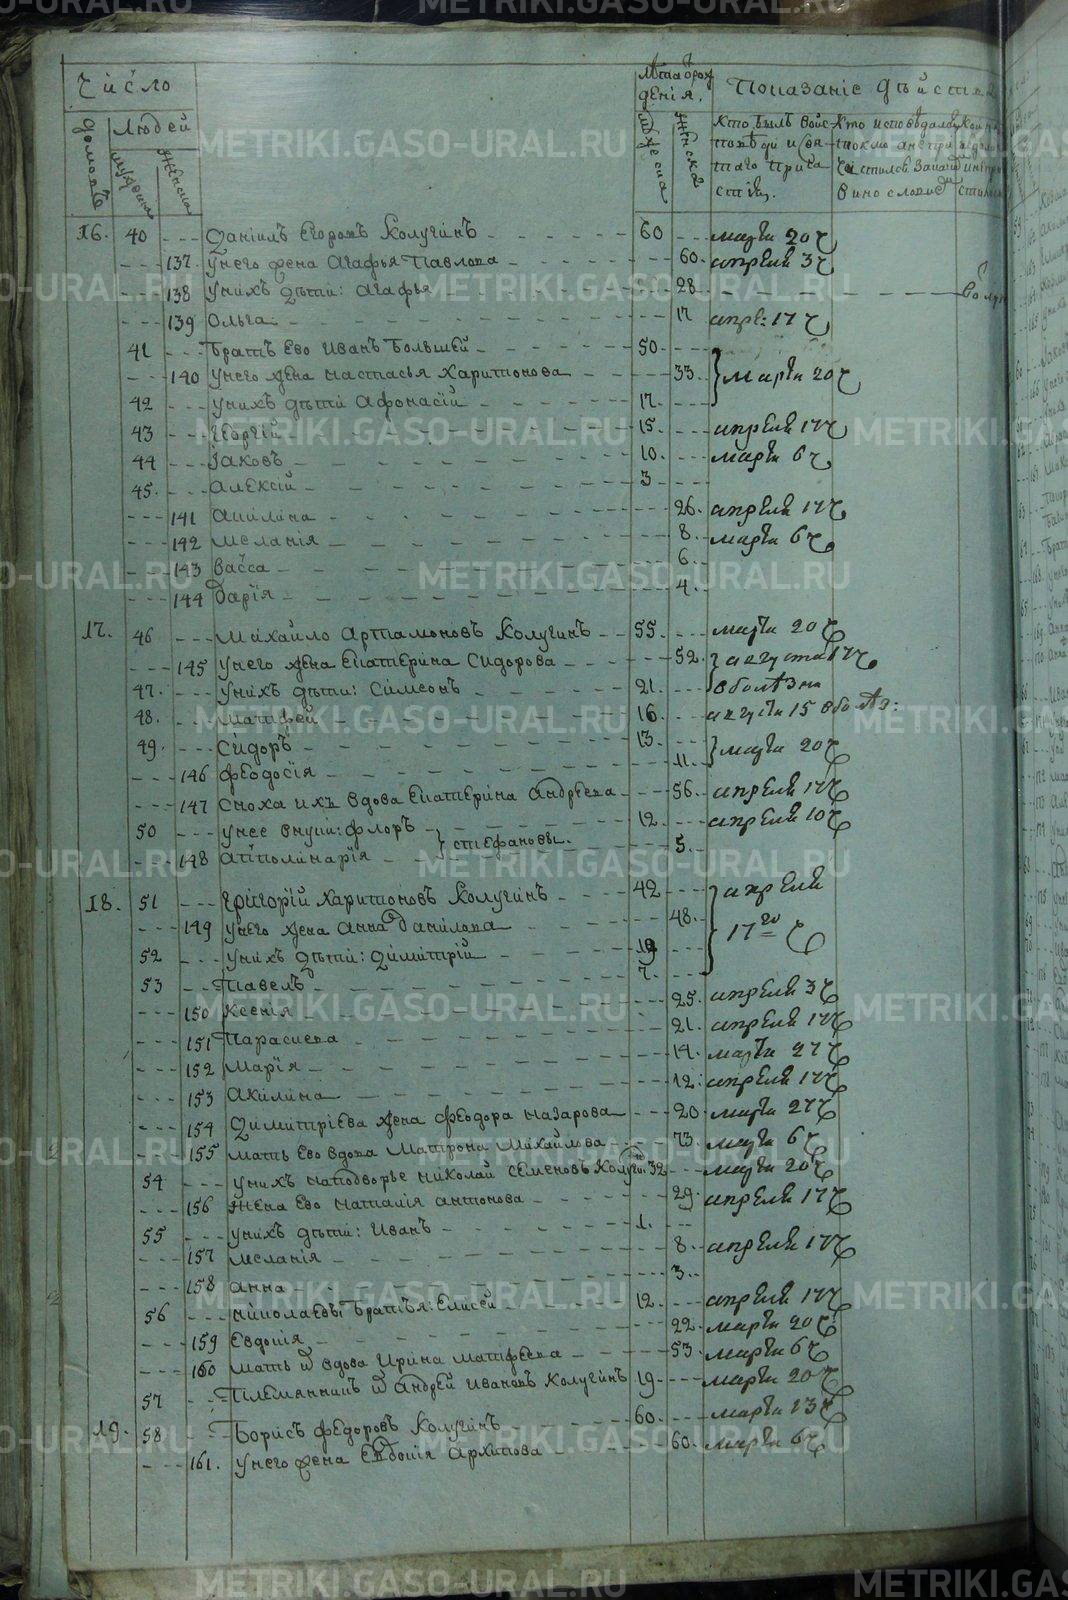 Число
Людей
домовъ
мужеска
женска
лѣта ѿ рож
денія.
мужеска
женска
Показаніе дѣйств
Кто былъ во ис
повѣди и свя
таго прича
стія.
Кто исповѣдался
токмо а не при
частился за какой
винословіем
16. 40 Даніилъ Егоровъ Колугинъ 60 марта 20
137 у него жена Агафья Павлова 60 апреля 3
138 у нихъ дѣти: Агафья 28
139 Ольга 17 апрѣ: 17
41 Братъ ево Иванъ Большей 50
140 у него жена Настасья Харитонова 33 марта 20
42 у нихъ дѣти Афонасій 17
43 Георгій 15 апреля 17
44 Іаковъ 10 марта 6
45 Алексій 3
141 Акилина 26 апреля 17
142 Меланія 8 марта 6
143 Васса 6
144 Дарія 4
17. 46 Михайло Артамоновъ Колугинъ 55 марта 20
145 у него жена Екатерина Сидорова 52 августа 17
47 у нихъ дѣти: Симеонъ 21 в болѣзни
48 Матфей 16 августа 15 в болѣз:
49 Сидоръ 13 марта 20
146 Феодосія 11
147 Сноха ихъ вдова Екатерина Андреева 56 апреля 17
50 у нее внуки: Флоръ 12 апреля 10
148 Апполинарія стефановы. 5
18. 51 Григорій Харитоновъ Колугинъ 42 апреля
149 у него жена Анна Данилова 48 17го
52 у нихъ дѣти: Димитрій 19
53 Павелъ 7
150 Ксенія 25 апреля 3
151 Параскева 21 апреля 17
152 Марія 14 марта 27
153 Акилина 12 апреля 17
154 Димитріева жена Феодора Назарова 20 марта 27
155 мать ево вдова Матрона Михайлова 73 марта 6
54 у нихъ на подворье Николай Семеновъ Колугин 32 марта 20
156 Жена ево Наталія Антонова 29 апреля 17
55 у нихъ дѣти: Иванъ 1
157 Меланія 8 апреля 17
158 Анна 3
56 Николаевы Братья: Елисей 12 апреля 17
159 Евдокія 22 марта 20
160 мать и вдова Ирина Матфеева 53 марта 6
57 Племянникъ и Андрей Ивановъ Колугинъ 19 марта 20
19. 58 Борисъ Федоровъ Колугинъ 60 марта 13
161. у него жена Евдокія Архипова 60 марта 6
METRIKI.GASO-URAL.RU